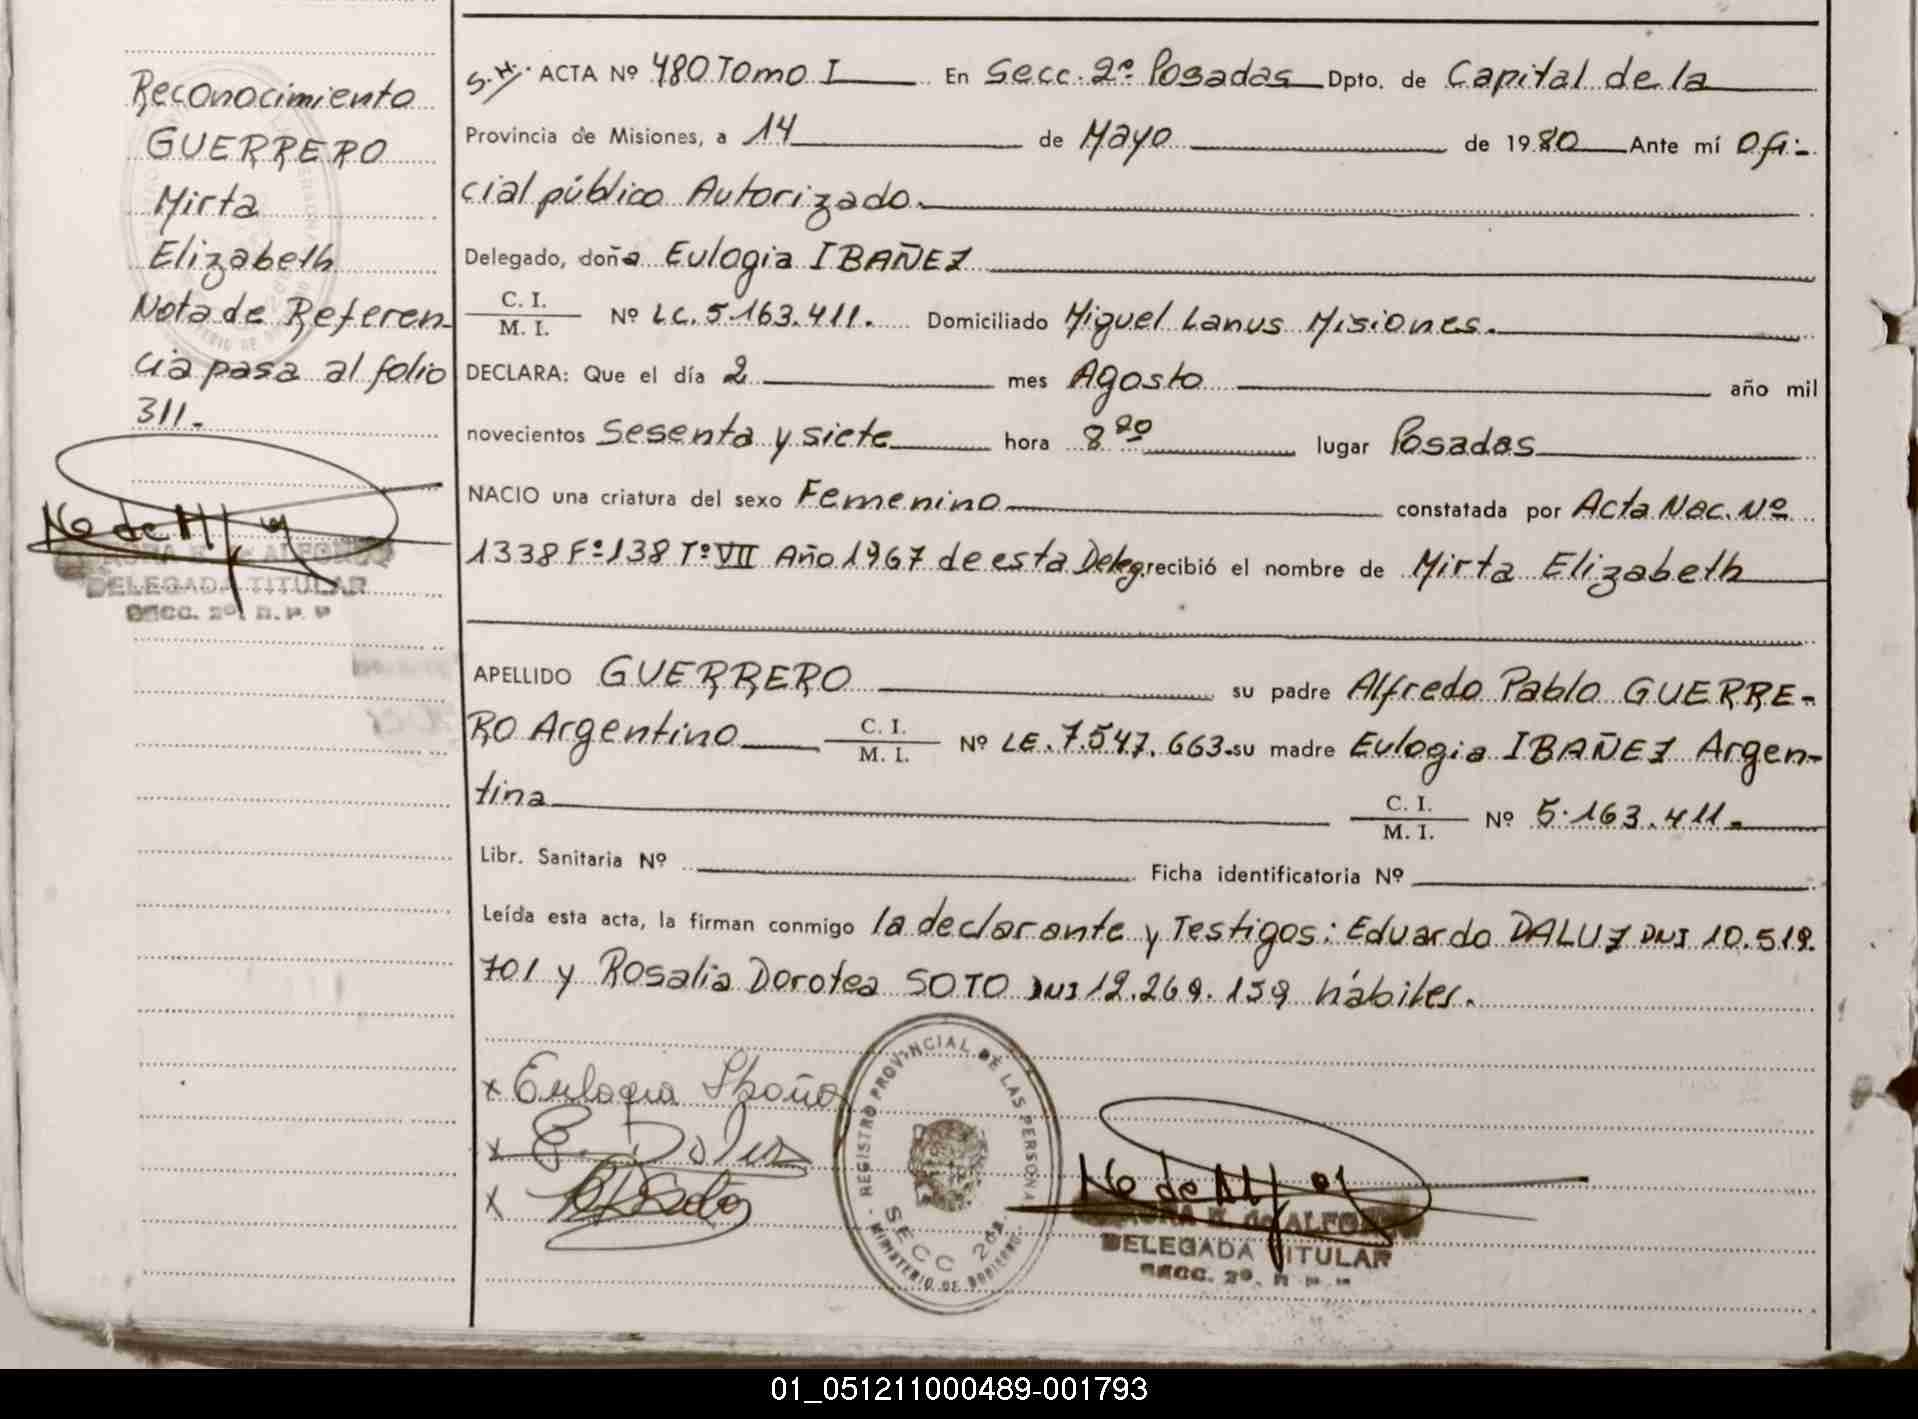 Reconocimiento
GUERRERO
Mirta
Elizabeth
Nota de Referen-
cia pasa al folio
311.-
DELEGADA TITULAR
SECC. 2º
S.H. ACTA Nº 480 Tomo I En Secc. 2º Posadas Dpto. de Capital de la
Provincia de Misiones, a 14 de Mayo de 1980 Ante mí Ofi-
cial público Autorizado.
Delegado, doña Eulogia IBAÑEZ
C. I.
M. I. Nº LC. 5.163.411. Domiciliado Miguel Lanus Misiones.
DECLARA: Que el día 2 mes Agosto año mil
novecientos Sesenta y siete hora 8 20 lugar Posadas
NACIO una criatura del sexo Femenino constatada por Acta Nac. Nº
1338 Fº 138 Tº VII Año 1967 de esta Deleg. recibió el nombre de Mirta Elizabeth
APELLIDO GUERRERO su padre Alfredo Pablo GUERRE-
RO Argentino C. I. M. I. Nº LE. 7.547.663. su madre Eulogia IBAÑEZ Argen-
tina C. I. M. I. Nº 5.163.411.
Libr. Sanitaria Nº Ficha identificatoria Nº
Leída esta acta, la firman conmigo la declarante y Testigos: Eduardo DALUZ DNI 10.519.
701 y Rosalia Dorotea SOTO DNI 12.269.159 hábiles.
x Eulogia Ibañez
x
x
REGISTRO PROVINCIAL DE LAS PERSONAS
SECC 2da.
MINISTERIO DE GOBIERNO
DELEGADA TITULAR
SECC. 2º
01_051211000489-001793